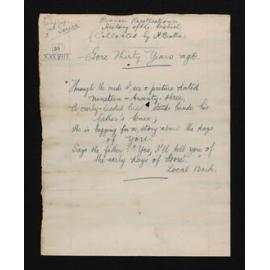 Pioneer Recollections
History of the District
(Collected by H. Beattie)
XXXVIII
Gore Thirty Years ago.
Through the mists I see a picture dated
Nineteen - Seventy - three,
A curly-headed stands beside his
father's knee;
He is begging for a story about the days
of yore
Says the father: "Yes, I'll tell you of
the early days of Gore."
Local Bard.